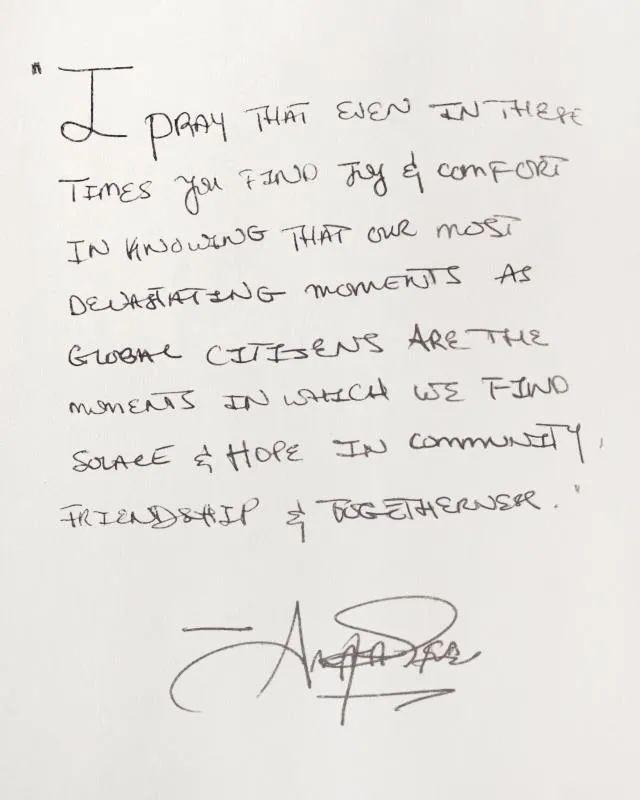 "I PRAY THAT EVEN IN THESE
TIMES you FIND Joy & COMFORT
IN KNOWING THAT OUR MOST
DEVASTATING MOMENTS AS
GLOBAL CITIZENS ARE THE
MOMENTS IN WHICH WE FIND
SOLACE & HOPE IN COMMUNITY,
FRIENDSHIP & TOGETHERNESS."